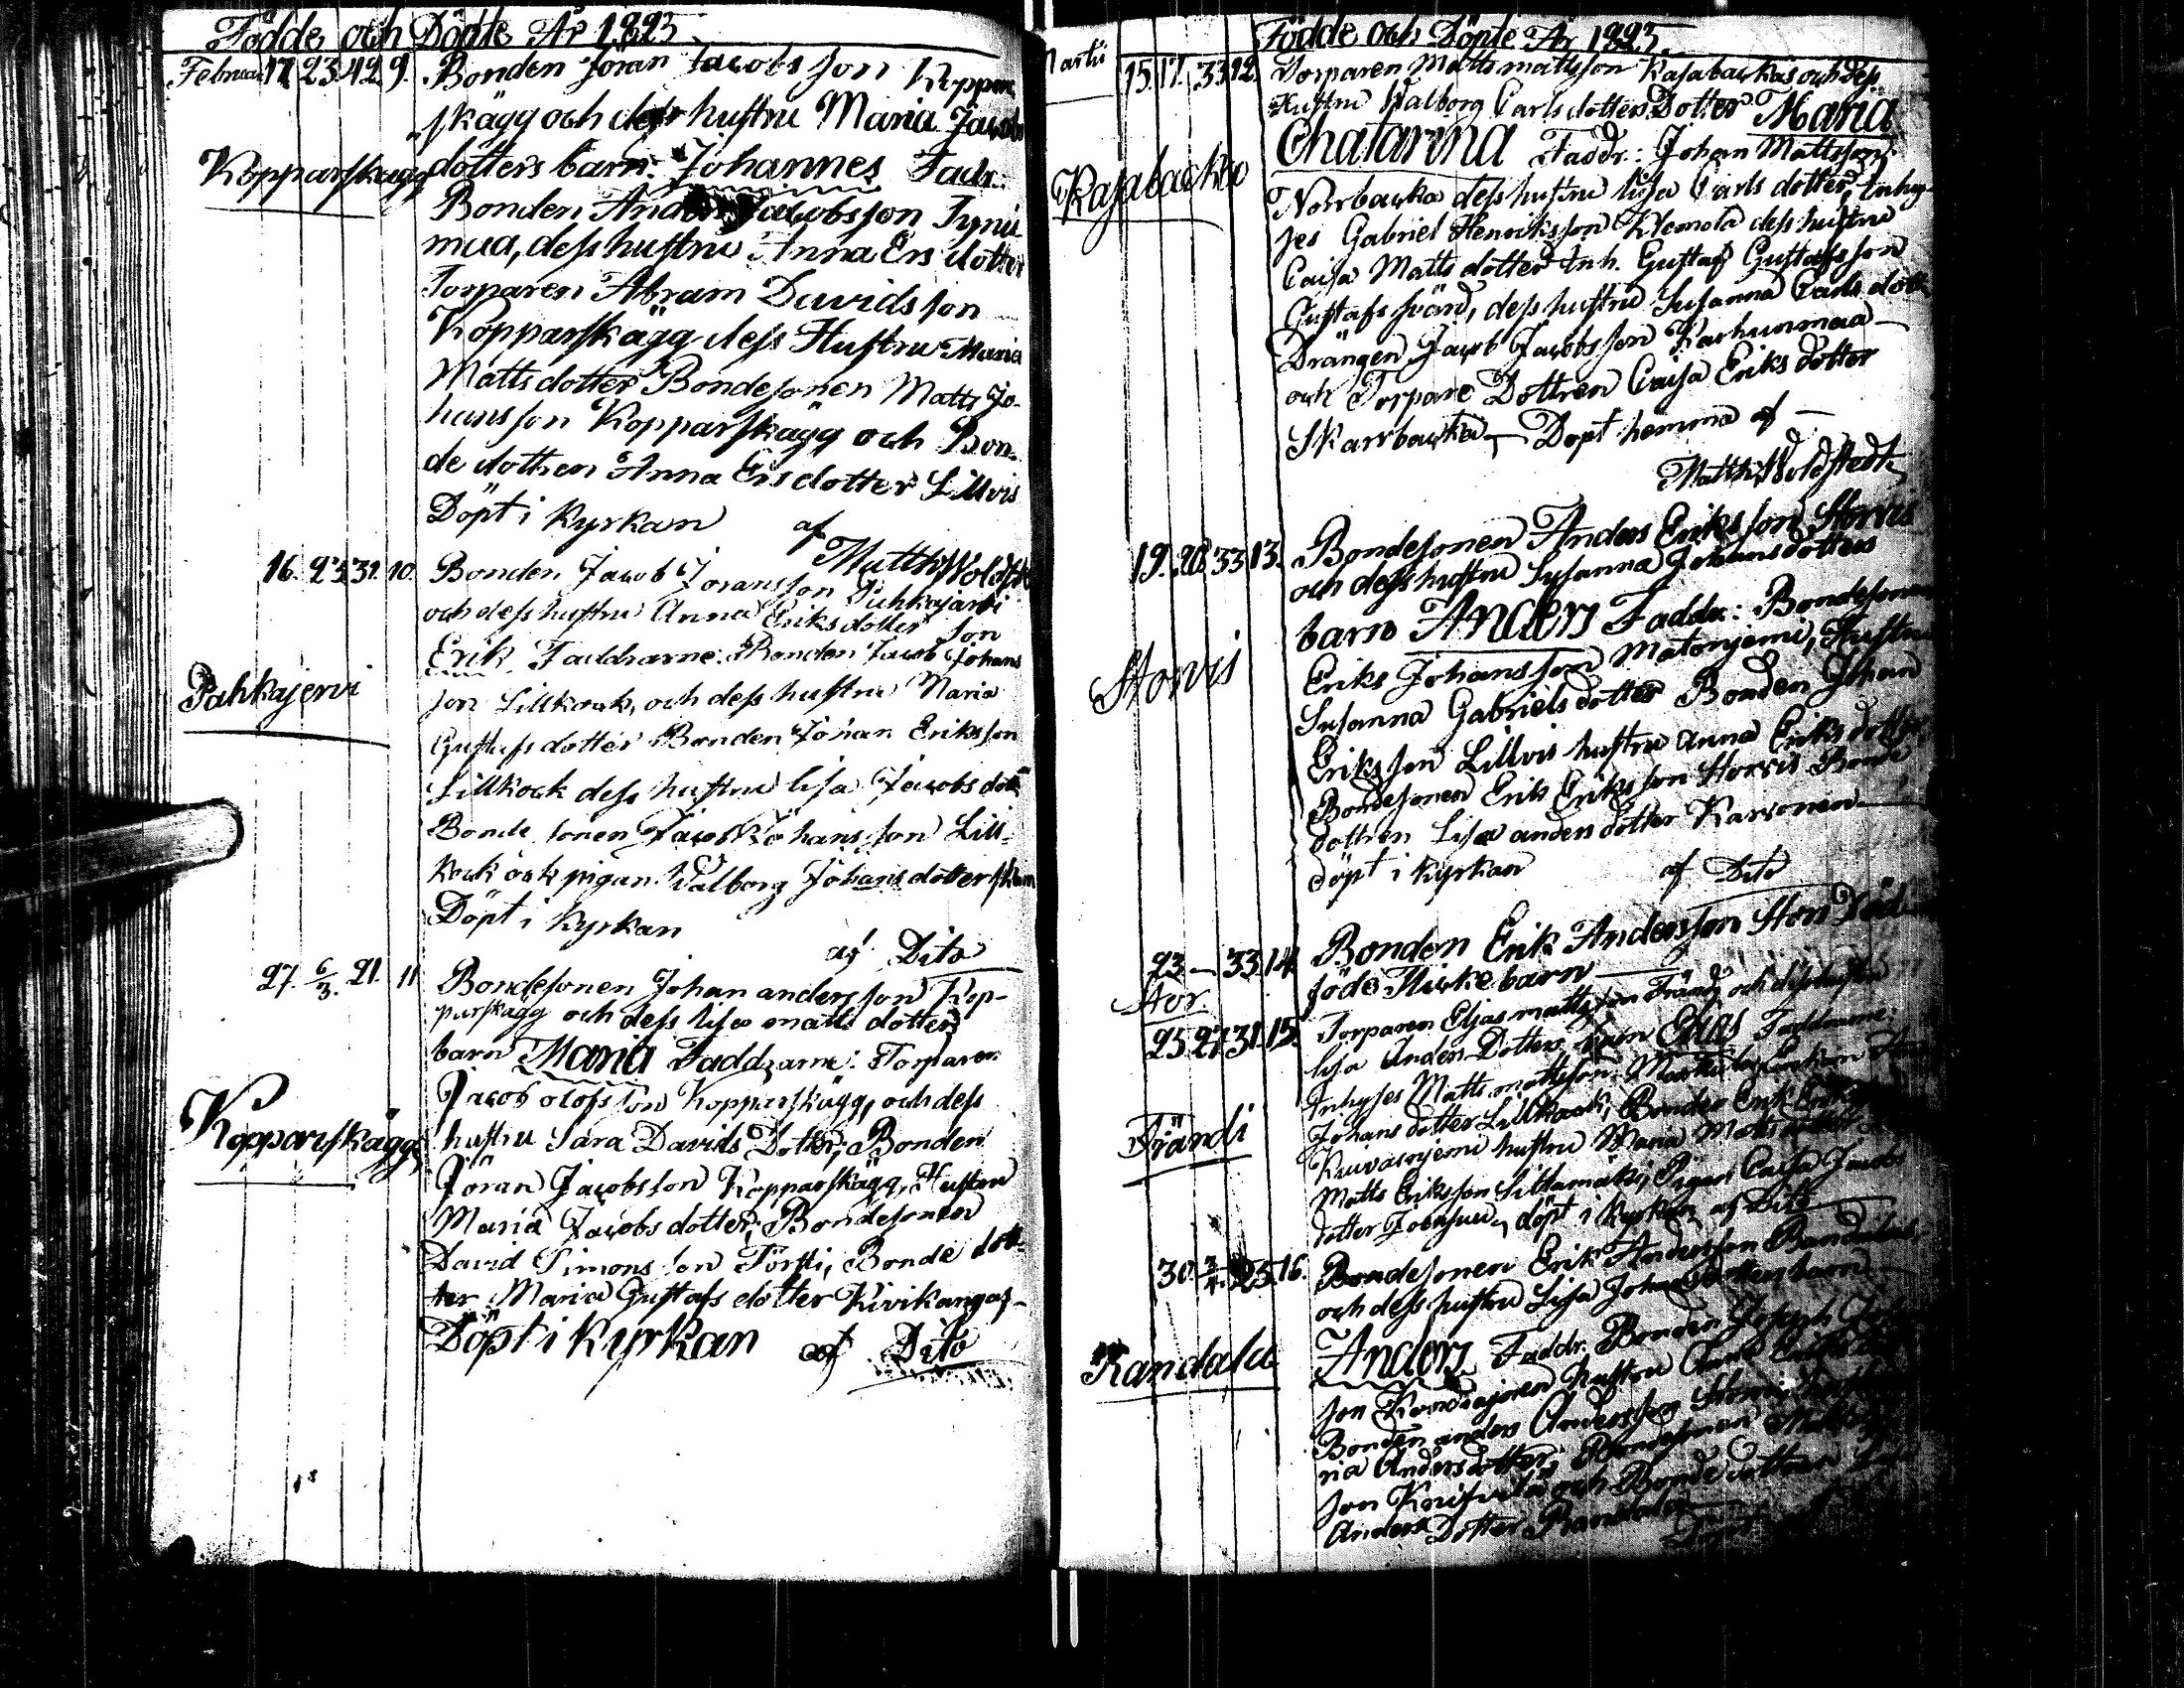 Födde och Döpte År 1823.
Februari 17. 23. 42. 9. Bonden Jöran Jacobsson Koppar
skägg och dess hustru Maria Jacobs
Kopparskägg dotters barn: Johannes Fadr.
Bonden Anders Jacobsson Tyni-
mua, dess hustru Anna Ersdotter
Torparen Abram Davidsson
Kopparskägg dess Hustru Maria
Mattsdotter Bondesonen Matts Jo-
hansson Kopparskägg och Bon-
de dottren Anna Ersdotter Lillvis
Döpt i Kyrkan af
Matth: Woldstedt
16. 23. 31. 10. Bonden Jacob Joransson Pahkajärvi
och dess hustru Anna Eriksdotter Son
Erik Faddrarne: Bonden Jacob Johans
Pahkajervi
son Lillkock, och dess hustru Maria
Gustafsdotter Bonden Johan Eriksson
Lillkock dess hustru Lisa Jacobs dott
Bonde sonen Jacob Johansson Lill-
kock och pigan Walborg Johans dotter
Döpt i Kyrkan
af Dito
27. 6/3. 21. 11 Bondesonen Johan andersson Kop-
parskägg och dess Lisa matts dotter
barn Maria Faddrarne: Torparen
Jacob olofsson Kopparskägg, och dess
Kopparskägg hustru Sara Davids Dotter, Bonden
Jöran Jacobsson Kopparskägg, Hustru
Maria Jacobs dotter, Bondesonen
David Simonsson Törsti, Bonde dott-
ter Maria Gustafs dotter Kivikangas-
Döpt i Kyrkan af Dito
Födde och Döpte År 1823.
Martii 15. 17. 33. 12. Torparen Matts mattsson Rajabackas och dess
Hustru Walborg Carlsdotters Dotter Maria
Chatarina Faddr.: Johan Mattsson
Rajabacka
Norrbacka dess hustru Lisa Carls dotter, Inhy-
ses Gabriel Henriksson Klemola dess hustru
Caisa Matts dotter Inh. Gustaf Gustafsson
Gustafsswärd, dess hustru Susanna Carls dott
Drängen Jacob Jacobsson Karhunmaa
och Torpare Dottren Caisa Eriks dotter
Skarrbacka Döpt hemma af
Matth: Woldstedt
19. 20. 33. 13. Bondesonen Anders Eriksson Storvis
och dess hustru Susanna Johansdotters
barn Anders Faddr.: Bondesonen
Storvis
Eriks Johansson Matonjemi, Hustru
Susanna Gabrielsdotter Bonden Johan
Eriksson Lillvis hustru Anna Eriks dotter
Bondesonen Erik Eriksson Storvis Bonde
dottren Lisa anders dotter Karvonen
döpt i Kyrkan af Dito
23. — 33. 14. Bonden Erik Andersson Stor Död
Stor. föde Flickebarn
25. 27. 31. 15. Torparen Elias mattsson Frändi och dess hustru
Lisa Anders Dotters barn Elias Faddrarne:
Inhyses Matts mattsson
Johans dotter Lillkock, Bonden Erik
Frändi
hustru Maria Matts dotter
Matts Eriksson Pigan Caisa Jacobs
dotter döpt i Kyrkan af Dito
30. 23. 16. Bondesonen Erik Andersson Randala
och dess hustru Lisa Johansdotters barn
Randala Anders Faddr. Bonden Joseph
son hustru Anna Eriks
Bonden anders Andersson
ria Andersdotter; Bondesonen Matts
son och Bonde dottren Lisa
Anders Dotter Randala